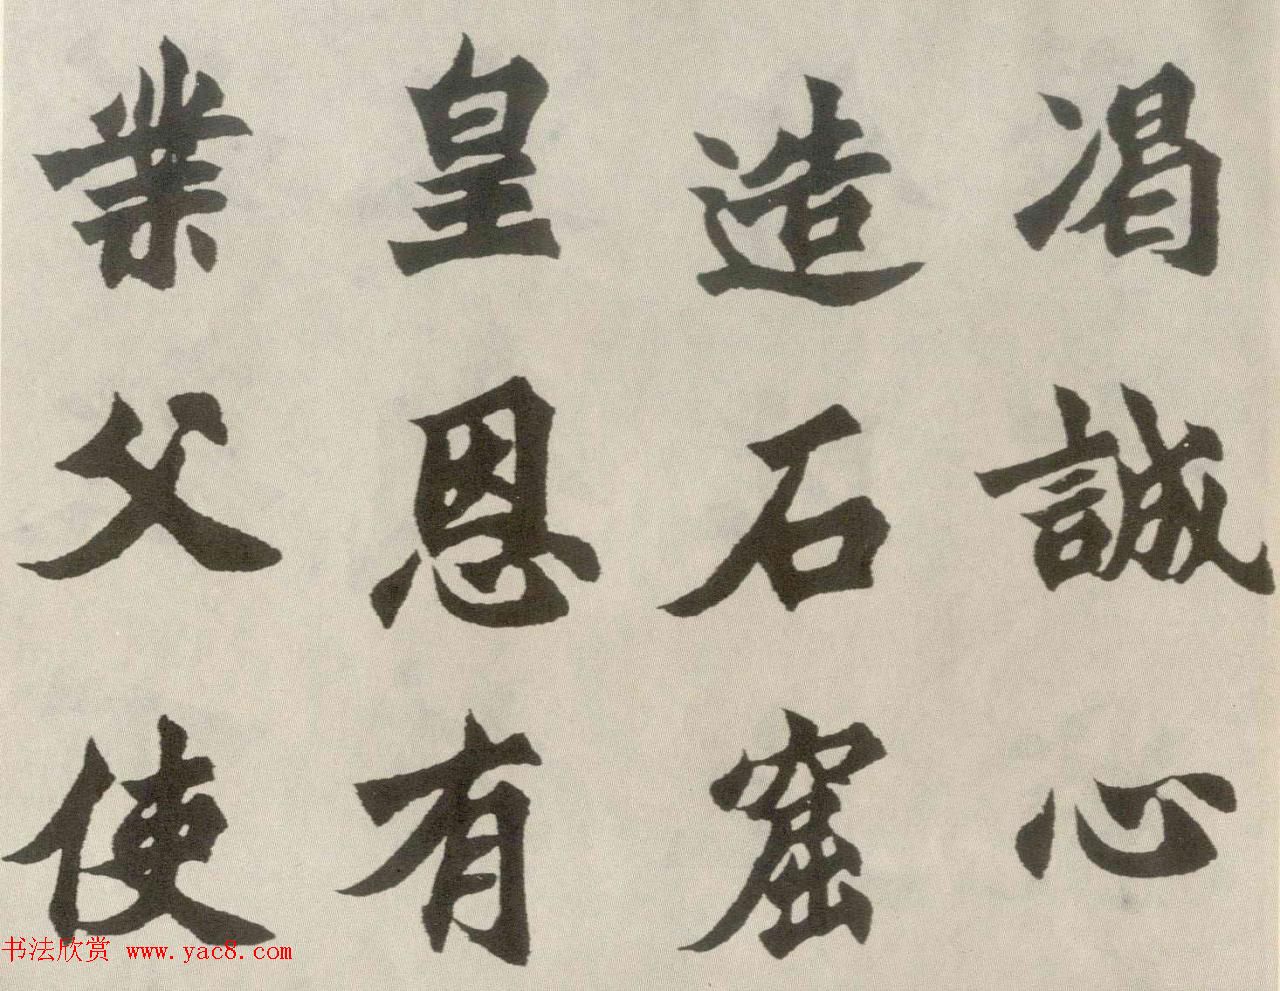 渴誠心
造石窟
皇恩有
業父使
书法欣赏 www.yac8.com